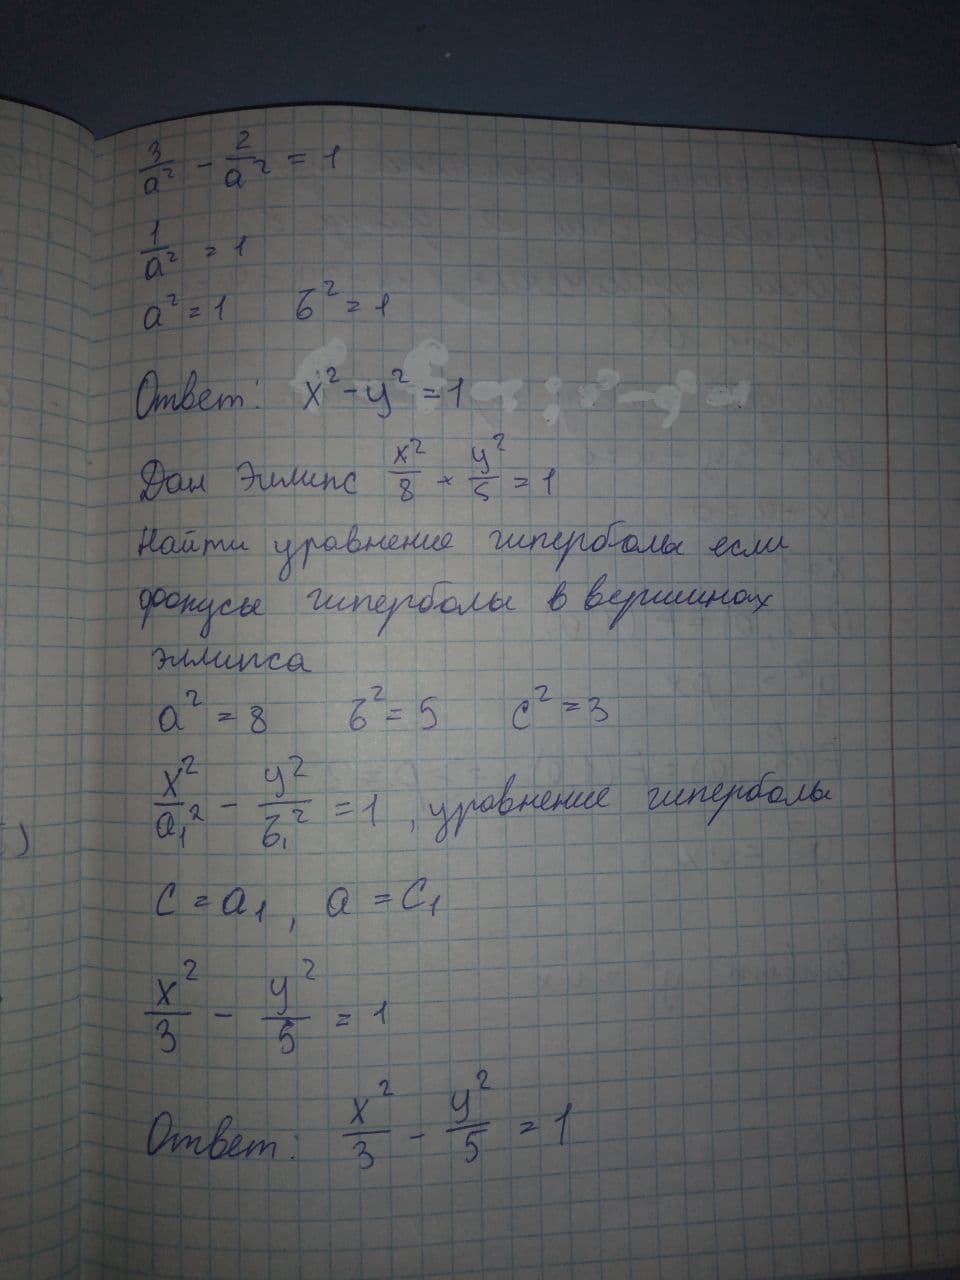 3/a² - 2/a² = 1
1/a² = 1
a² = 1 б² = 1
Ответ: x² - y² = 1
Дан Эллипс x²/8 + y²/5 = 1
Найти уравнение гиперболы если
фокусы гиперболы в вершинах
эллипса
a² = 8 б² = 5 c² = 3
x²/a₁² - y²/б₁² = 1, уравнение гиперболы
c = a₁, a = c₁
x²/3 - y²/5 = 1
Ответ: x²/3 - y²/5 = 1